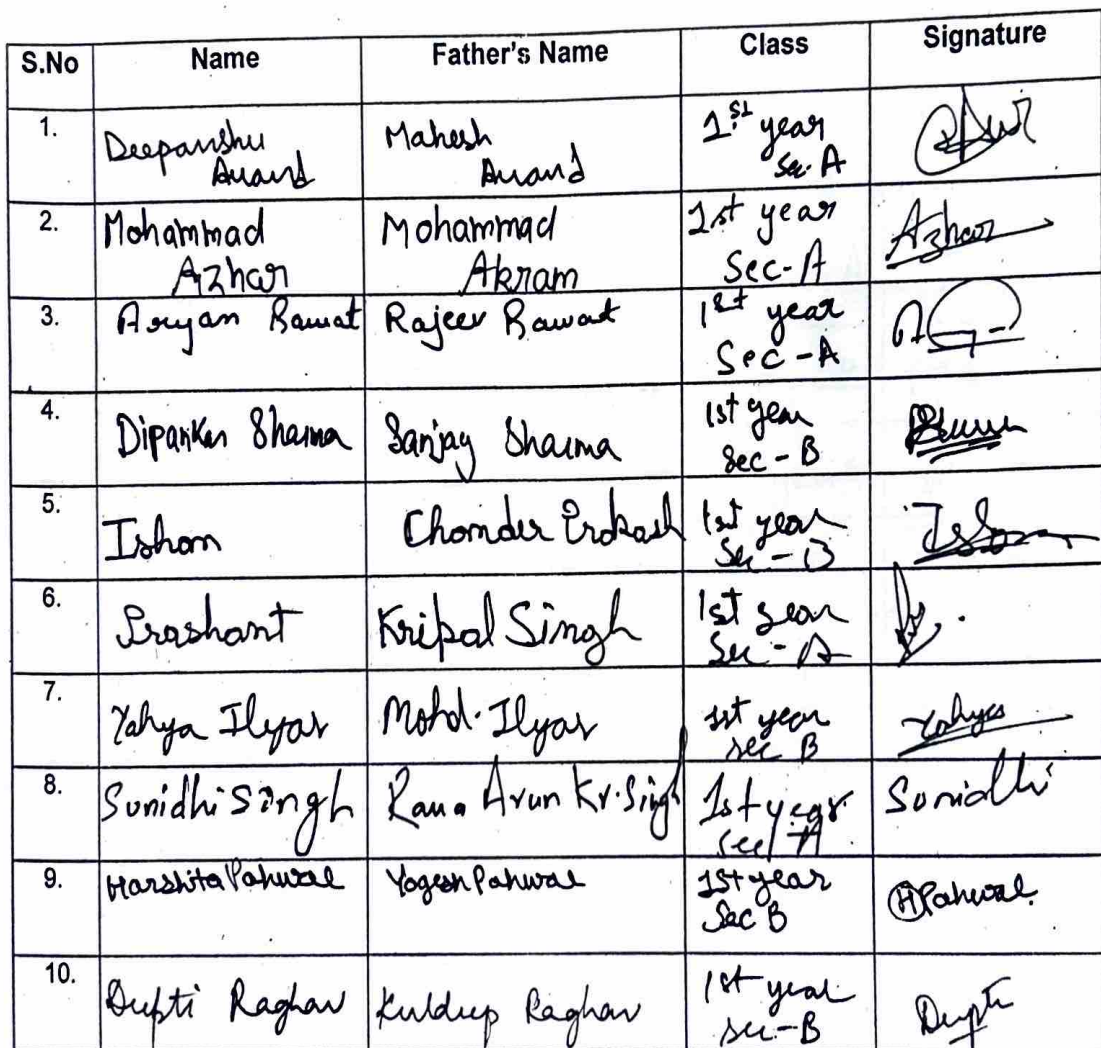 S.No Name Father's Name Class Signature
1. Deepanshu Anand Mahesh Anand 1st year Sec-A
2. Mohammad Azhar Mohammad Akram 1st year Sec-A Azhar
3. Aryan Rawat Rajeev Rawat 1st year Sec-A
4. Dipanker Sharma Sanjay Sharma 1st year Sec-B
5. Ishan Chander Prakash 1st year Sec-B Ishan
6. Prashant Kripal Singh 1st year Sec-A
7. Yahya Ilyas Mohd. Ilyas 1st year sec B Yahya
8. Sunidhi Singh Rana Arun Kr. Singh 1st year sec A Sunidhi
9. Harshita Pahwal Yogesh Pahwal 1st year Sec B HPahwal
10. Dupti Raghav Kuldeep Raghav 1st year sec-B Dupti